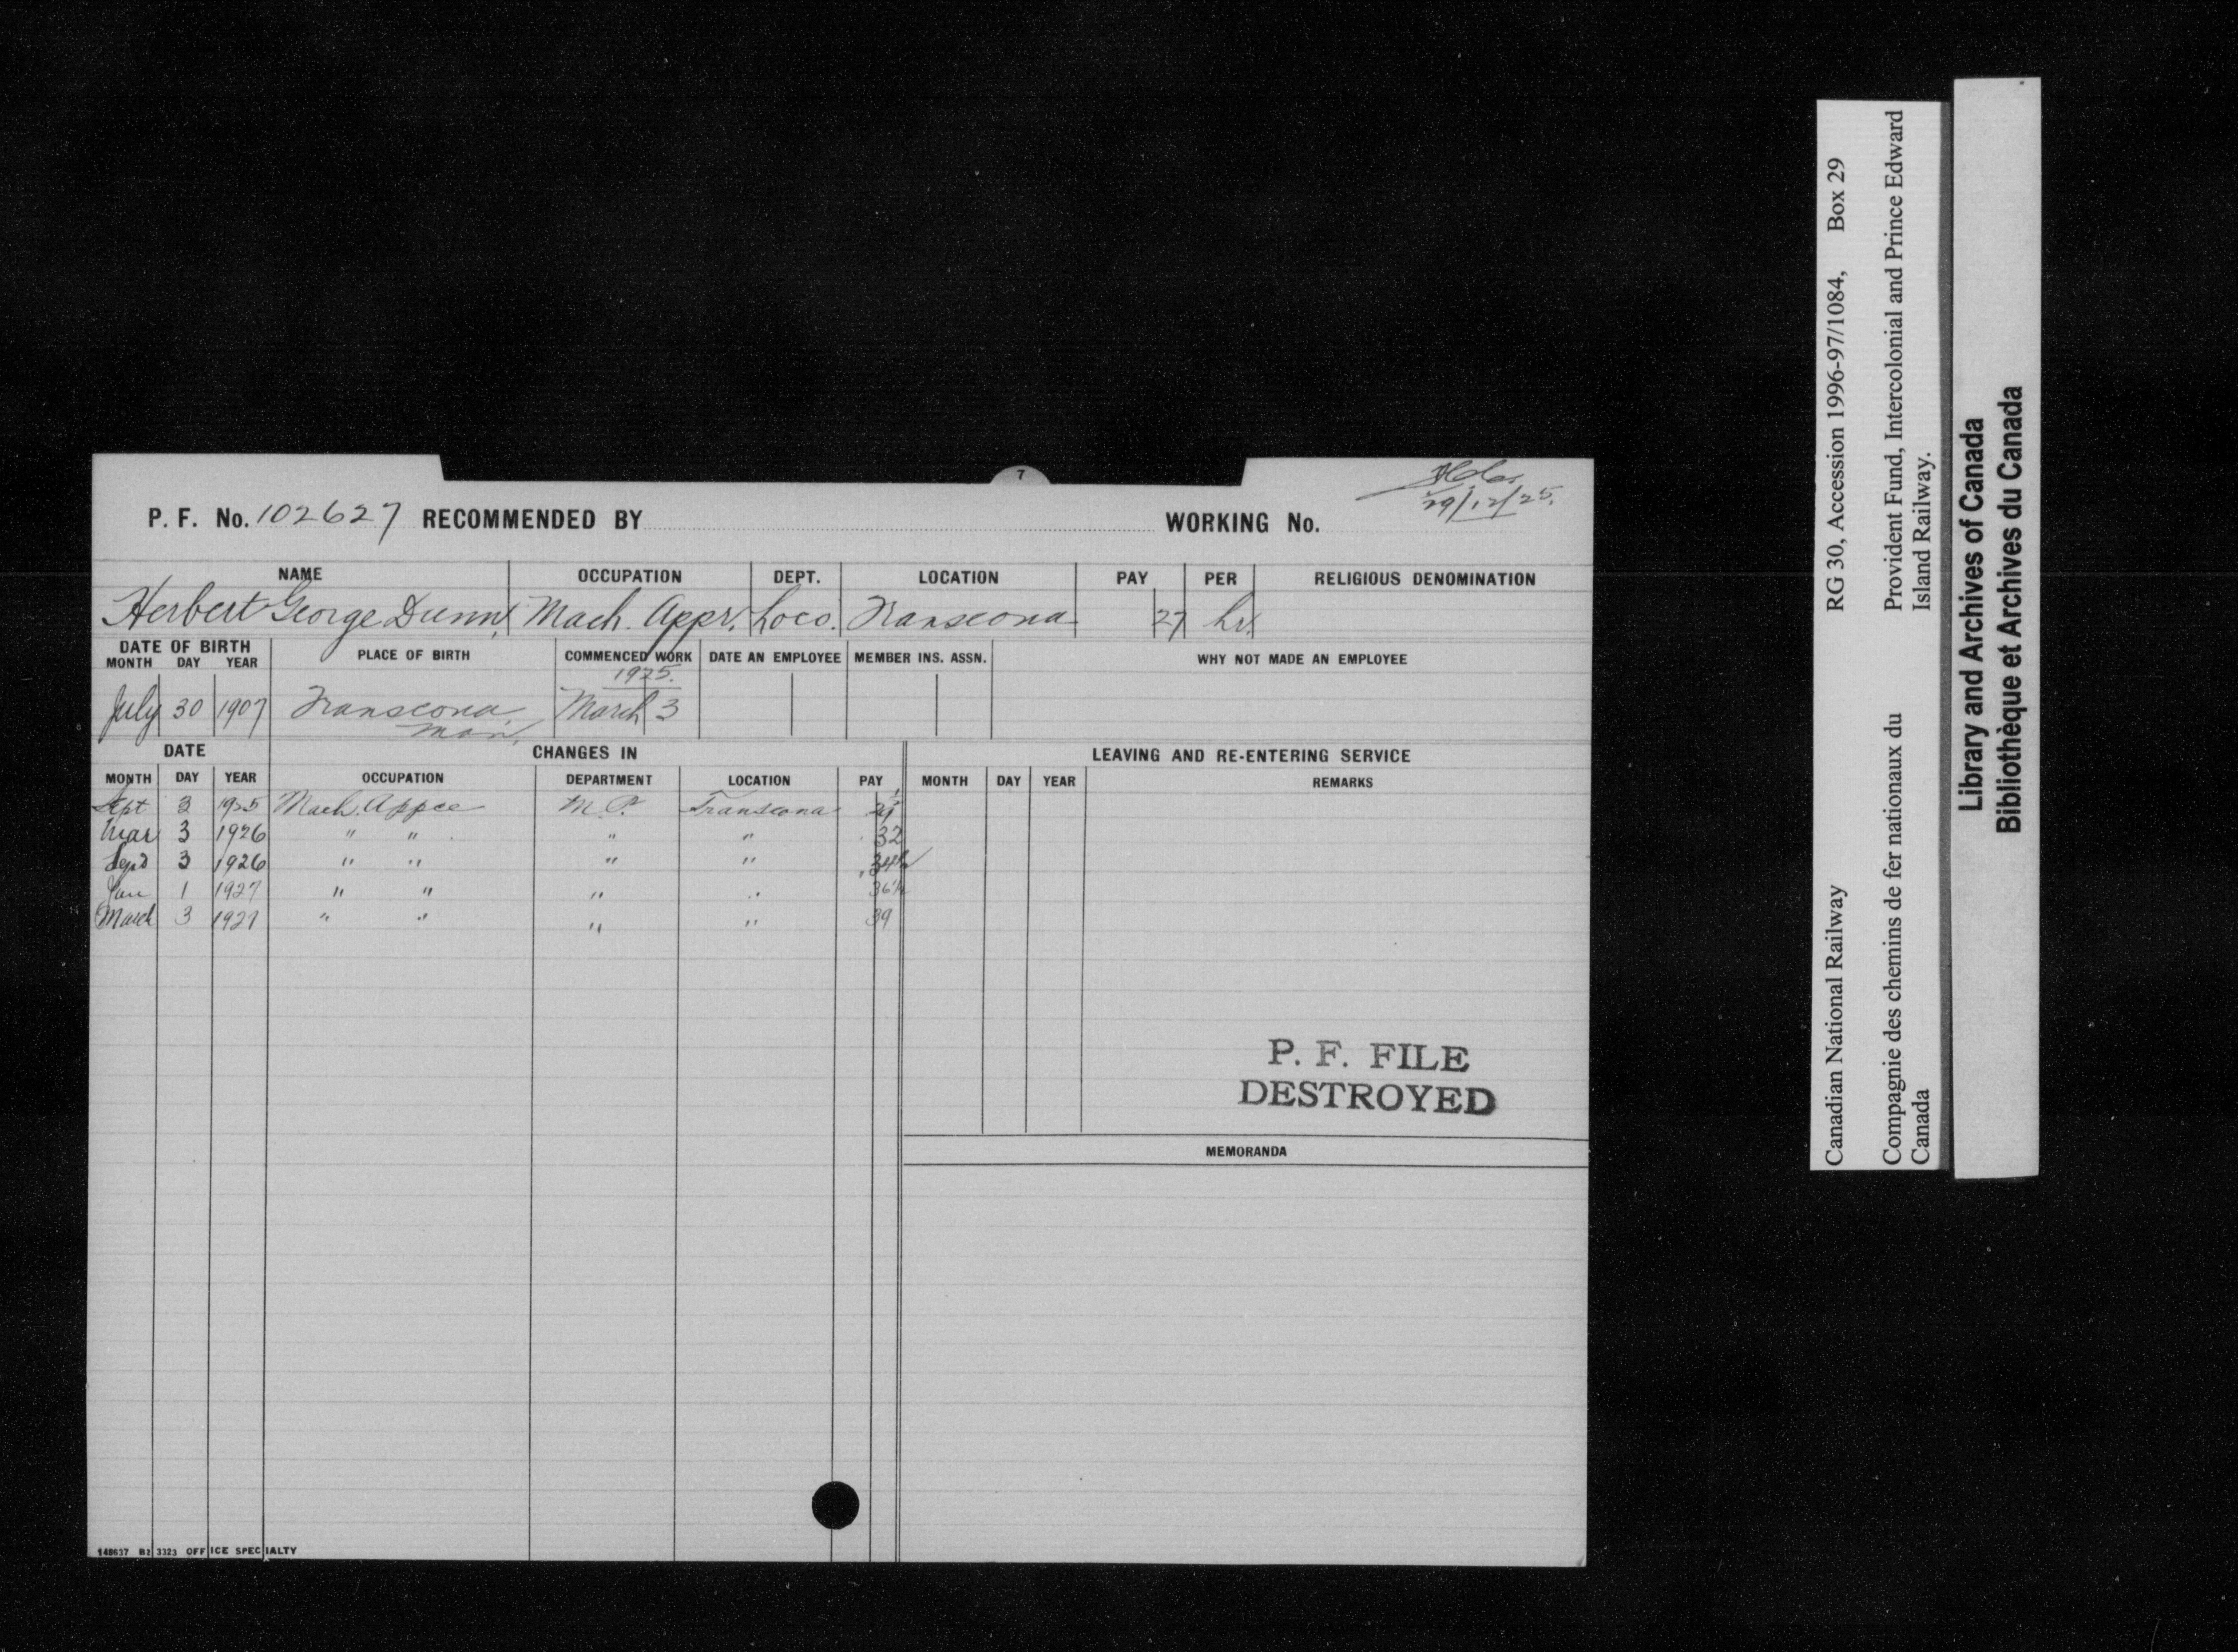 7
29/12/25.
P. F. No. 102627 RECOMMENDED BY WORKING No.
NAME OCCUPATION DEPT. LOCATION PAY PER RELIGIOUS DENOMINATION
Herbert George Dunn Mach. Appr. Loco. Transcona 27 hr.
DATE OF BIRTH PLACE OF BIRTH COMMENCED WORK DATE AN EMPLOYEE MEMBER INS. ASSN. WHY NOT MADE AN EMPLOYEE
MONTH DAY YEAR
1925.
July 30 1907 Transcona, March 3
Man.
DATE CHANGES IN LEAVING AND RE-ENTERING SERVICE
MONTH DAY YEAR OCCUPATION DEPARTMENT LOCATION PAY MONTH DAY YEAR REMARKS
Sept 3 1925 Mach. Appce M. P. Transcona
Mar 3 1926 " " " " 32
Sept 3 1926 " " " " 34½
Jan 1 1927 " " " " 36½
March 3 1927 " " " " 39
P. F. FILE
DESTROYED
MEMORANDA
148637 B2 3323 OFFICE SPECIALTY
Canadian National Railway RG 30, Accession 1996-97/1084, Box 29
Compagnie des chemins de fer nationaux du Canada
Provident Fund, Intercolonial and Prince Edward
Island Railway.
Library and Archives of Canada
Bibliothèque et Archives du Canada